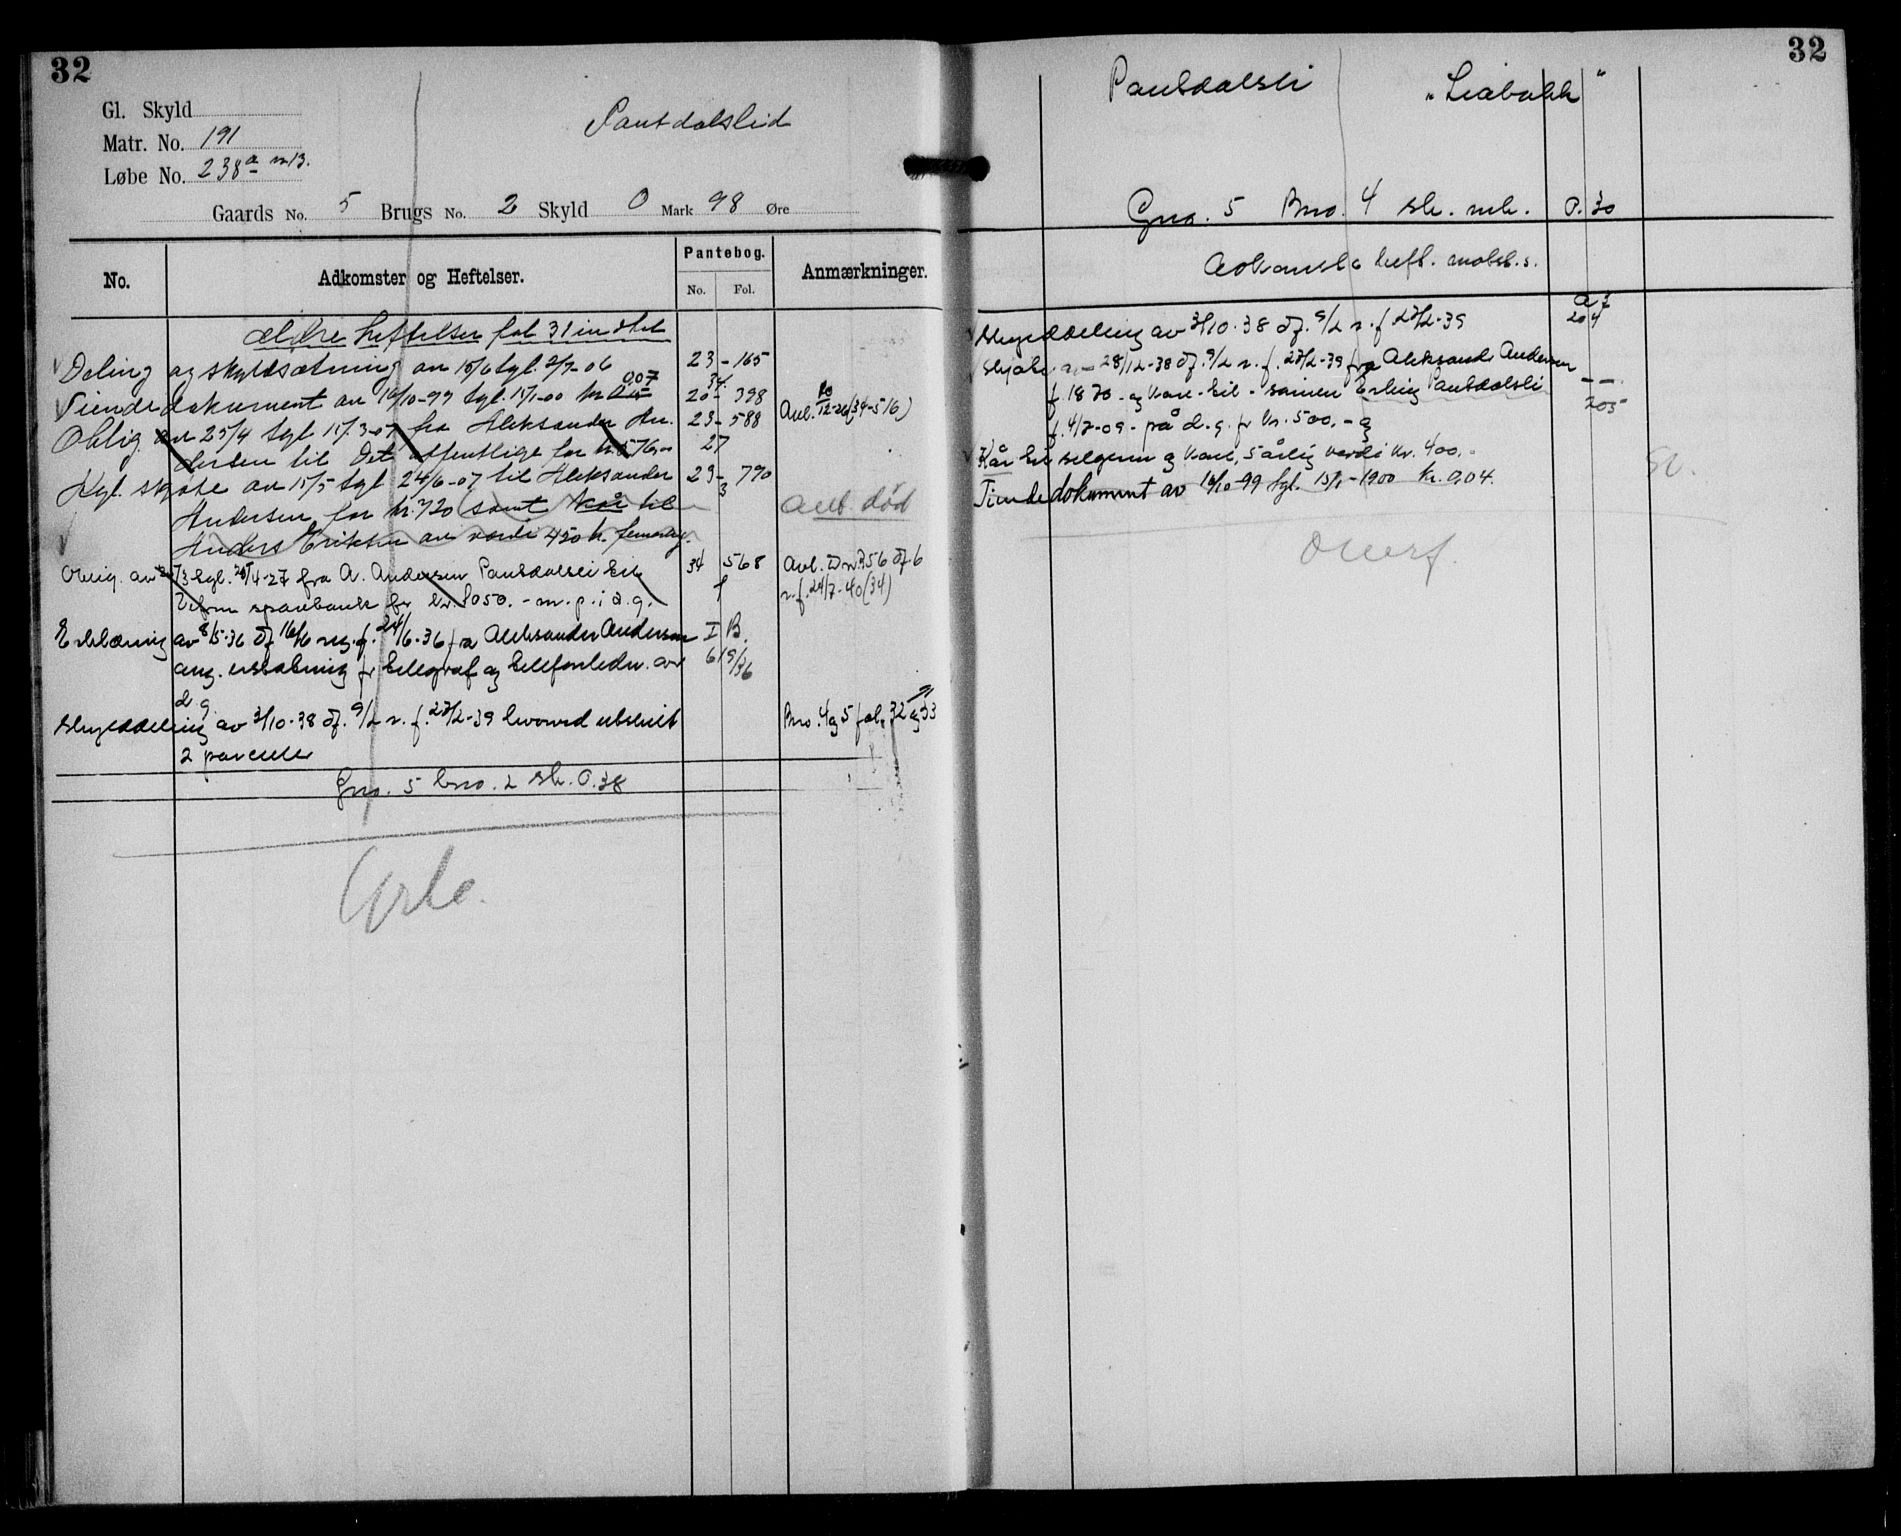 32
Gl. Skyld
Matr. No. 191
Løbe No. 238a
Pantdalslid
Gaards No. 5 Brugs No. 2 Skyld 0 Mark 98 Øre
No.
Adkomster og Heftelser.
Pantebog.
No. Fol.
Anmærkninger.
ældre heftelser fol 31
Deling og skyldsætning av 15/6 tgl. 2/7-06 23-165
0,07
Tiendedokument av 16/10-99 tgl. 15/1-00 kr 20-398
Oblig. av 25/4 tgl 15/5-07 fra Aleksander An. 23-588 Avl. 12-26 (34-516)
dersen til Det offentlige for kr. 576,- 27
Kgl. skjøte av 15/5 tgl 24/6-07 til Aleksander 23-790
3
Andersen for kr. 720 samt kår til Ant. død
Anders Eriksen av værdi 450 kr. femårlig.
Oblig. av /3 tgl. 20/4-27 fra A. Andersen Pantdalsli til 34 568 Avl. Dnr. 756 df 6
Vefsn sparebank for kr. 1050.- m. p. i d. g. r. f. 24/7-40 (34)
Erklæring av 8/5-36 df 16/6 reg. f. 24/6-36 fra Aleksander Andersen I B.
ang. erstatning for telegraf og telefonledn. over 619/36
d. g.
Skylddeling av 3/10-38 df. 9/2 r. f. 23/2-39 hvorved utskilt Bno. 4 og 5 fol. 32 og 33
2 parceller
Gno. 5 bno. 2 sk. 0.38
32
Pantdalsli "Liabakk"
Gno. 5 Bno. 4 sk. mk. 0.30
Adkomst & heft. motst. s.
Skylddeling av 3/10-38 df. 9/2 r. f. 23/2-39 204
Skjøte av 28/12-38 df. 9/2 r. f. 23/2-39 fra Aleksander Andersen
f. 1870 - og kone - til - sønnen Erling Pantdalsli — —. 205
f. 4/7-09 - på d. g. for kr. 500.- og
Kår til selgeren og kone, 5 årlig verdi kr. 400.-
Tiendedokument av 16/10-99 tgl. 15/1-1900 kr. 0,04.
Overf.